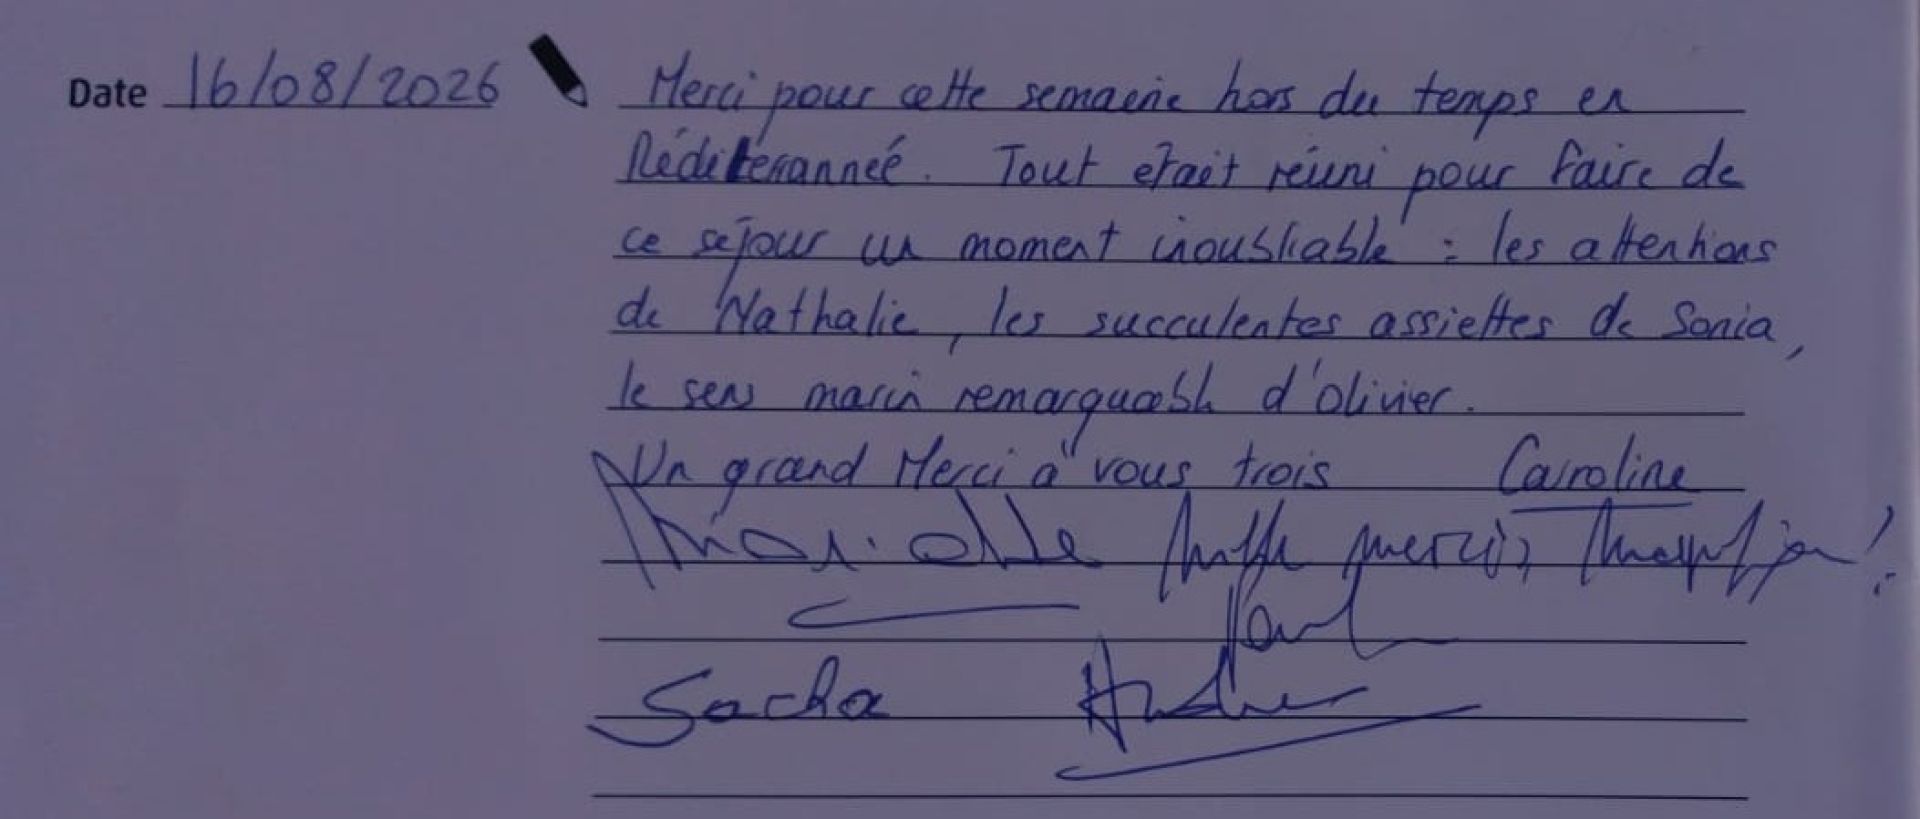 Date 16/08/2026
Merci pour cette semaine hors du temps en
Méditerannée. Tout était réuni pour faire de
ce séjour un moment inoubliable : les attentions
de Nathalie, les succulentes assiettes de Sonia,
le sens marin remarquable d'Olivier.
Un grand Merci à vous trois Caroline
mercis,
Paul
Sacha